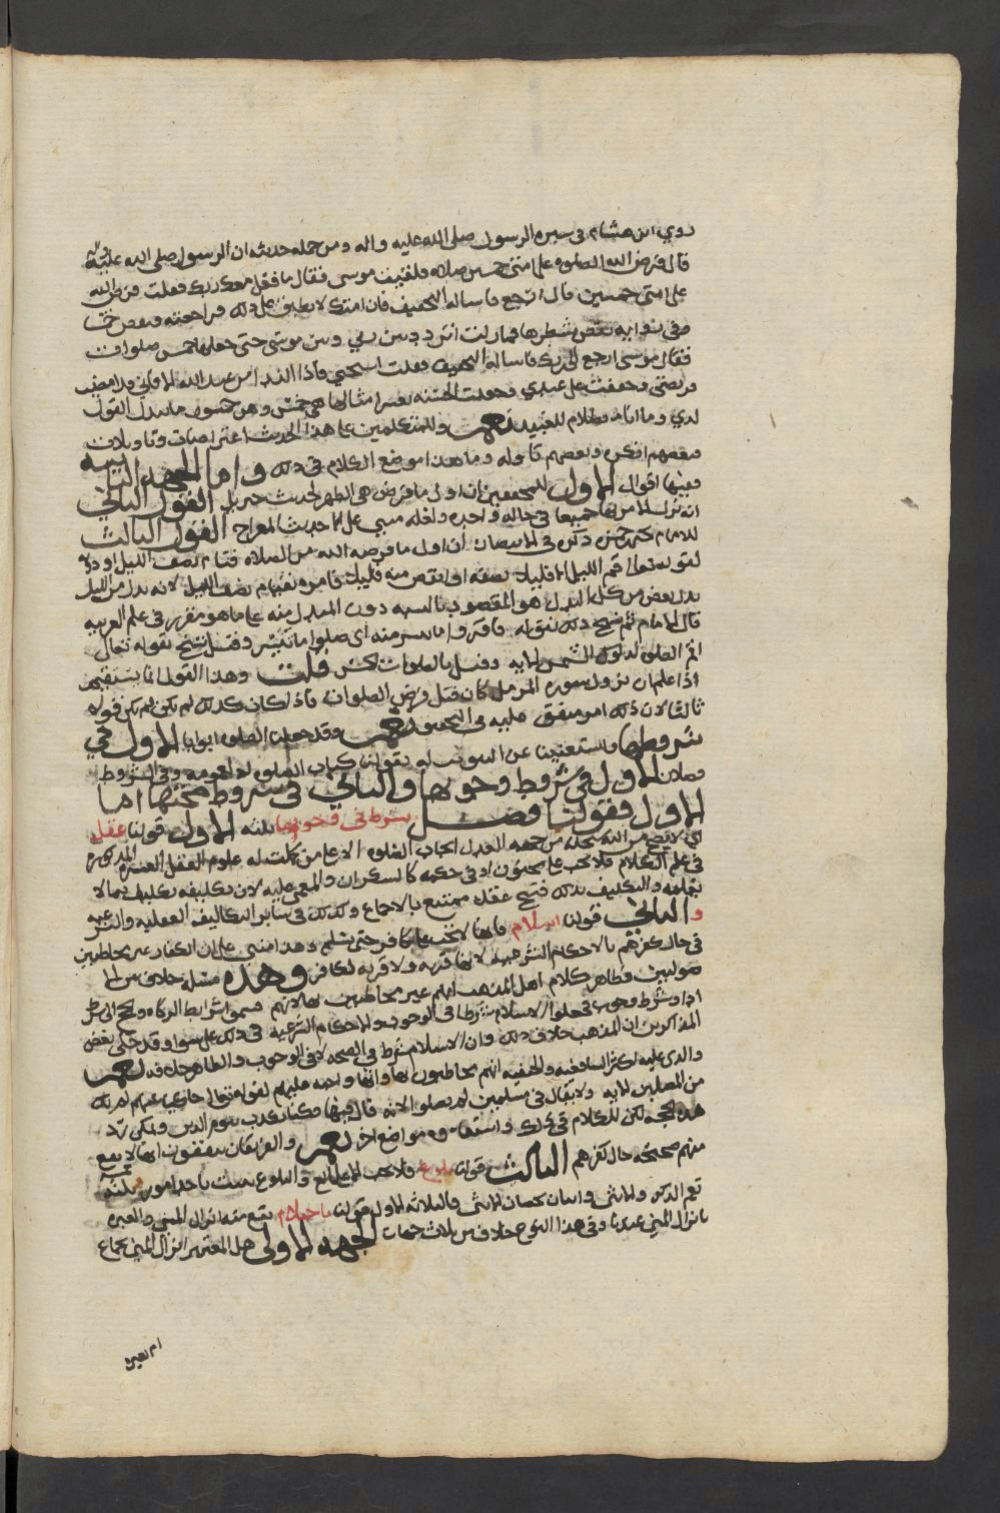 روي ابن هشام في سيره الرسول صلى الله عليه واله ومن جمله حديثه ان الرسول صلى الله عليه واله
قال فرض الله الصلوه على امتي خمسين صلاه فلقيت موسى فقال ما فعل معك ربك فقلت فرض الله
على امتي خمسين قال ارجع فاساله التخفيف فان امتك لا تطيق على ذلك فراجعته فنقص خمسا
وفي روايه نقص شطرها فما زلت اتردد بين ربي وبين موسى حتى جعلها خمس صلوات
فقال موسى ارجع الى ربك فاساله التخفيف فقلت استحيي فاذا الندا من عند الله الا اني قد امضيت
فريضتي وخففت على عبدي وجعلت الحسنه بعشر امثالها هي خمس وهن خمسون ما يبدل القول
لدي وما انا بظلام للعبيد نعم وللمتكلمين على هذا الحديث اعتراضات وتاويلات
فبعضهم انكره وبعضهم تاوله وما هذا موضع الكلام في ذلك واما الجهه الثانيه
ففيها اقوال الاول للمحققين ان اول ما فرض هي الظهر لحديث جبريل القول الثاني
انه نزل الامر بها جميعا في حاله واحده ولعله مبني على حديث المعراج القول الثالث
للامام يحيى ذكره في الانتصار ان اول ما فرضه الله من الصلاه قيام نصف الليل او دونه
لقوله تعالى قم الليل الا قليلا نصفه او انقص منه قليلا فامره بقيام نصف الليل لانه بدل من الليل
بدل بعض من كل والبدل هو المقصود بالنسبه دون المبدل منه على ما هو مقرر في علم العربيه
قال الامام ثم نسخ ذلك بقوله فاقروا ما تيسر منه اي صلوا ما تيسر وقيل نسخ بقوله تعالى
اقم الصلوه لدلوك الشمس الايه وقيل بالصلوات الخمس قلت وهذا القول انما يستقيم
اذا علم ان نزول سوره المزمل كان قبل فرض الصلوات فاذا كان كذلك لم يكن ثم يكن قولا
ثالثا لان ذلك امر متفق عليه في التحقيق نعم وقد جعلنا الصلوه ابوابا الاول في
شروطها واستغنينا عن التبويب له بقولنا كتاب الصلوه اذ العموميه وفي الشروط
فصلان الاول في شروط وجوبها والثاني في شروط صحتها اما
الاول فقولنا فصل يشترط في وجوبها ثلثه الاول قولنا عقل
اي لا يصح من الله سبحانه من جهه العدل ايجاب الصلوه الا على من كملت له علوم العقل العشره المذكوره
في علم الكلام فلا تجب على مجنون او في حكمه كالسكران والمغمى عليه لان تكليفه تكليف بما لا
يعلمه والتكليف بذلك قبيح عقلا ممتنع بالاجماع وكذلك في سائر التكاليف العقليه والشرعيه
والثاني قولنا اسلام فانها لا تجب على كافر حتى يسلم وهذا مبني على ان الكفار غير مخاطبين
في حال كفرهم بالاحكام الشرعيه لانها قربه ولا قربه لكافر وهذه مسئله خلاف بين الا
صوليين فظاهر كلام اهل المذهب انهم غير مخاطبين بها لانهم
اذا جعلوا الاسلام شرطا في الوجوب والاحكام الشرعيه في ذلك على سواء وقد حكى بعض
المذاكرين ان المذهب خلاف ذلك وان الاسلام شرط في الصحه لا في الوجوب والظاهر خلافه نعم
والذي عليه اكثر الشافعيه والحنفيه انهم مخاطبون بها وانها واجبه عليهم لقوله تعالى حاكيا عنهم لم نك
من المصلين الايه ولا يقال في مسلمين لم يصلوا لانه قال فيها وكنا نكذب بيوم الدين ويمكن رد
هذه الحجه لكن للكلام في ذلك واستقصائه مواضع اخر نعم والفريقان متفقون انها لا تقع
منهم صحيحه حال كفرهم الثالث قولنا بلوغ فلا تجب الا على بالغ والبلوغ يثبت باحد امور ثلثه
تعم الذكر والانثى واثنان يخصان الانثى والثلاثه الاول قولنا باحتلام يقع معه انزال المني والعبره
بانزال المني عندنا وفي هذا النوع خلاف من ثلاث جهات الجهه الاولى هل المعتبر انزال المني بجماع
ام بغيره